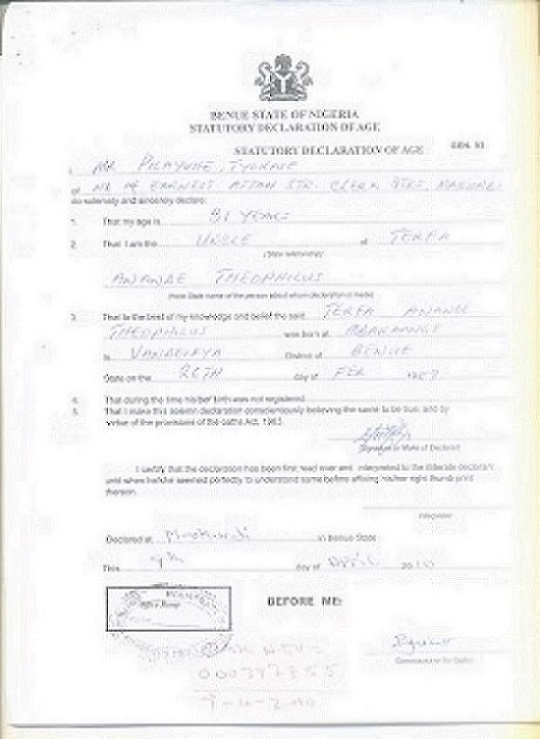 BENUE STATE OF NIGERIA
STATUTORY DECLARATION OF AGE
STATUTORY DECLARATION OF AGE
I MR
of EARNEST STR.
do solemnly and sincerely declare:
1. That my age is YEARS
2. That I am the UNCLE of TERFA
(State relationship)
ANANDE THEOPHILUS
(Here State name of the person about whom declaration is made)
3. That to the best of my knowledge and belief the said TERFA ANANDE
THEOPHILUS was born at
in VANDEIKYA District of BENUE
State on the 26TH day of FEB
4. That during the time his/her birth was not registered
5. That I make this solemn declaration conscientiously believing the same to be true, and by
virtue of the provisions of the oaths Act, 1963
(Signature or Mark of Declarant)
I certify that the declaration has been first read over and interpreted to the illiterate declarant
until when he/she seemed perfectly to understand same before affixing his/her right thumb print
thereon.
Interpreter
Declared at Makurdi in Benue State
This 9th day of April 2010
BEFORE ME:
Commissioner for Oaths